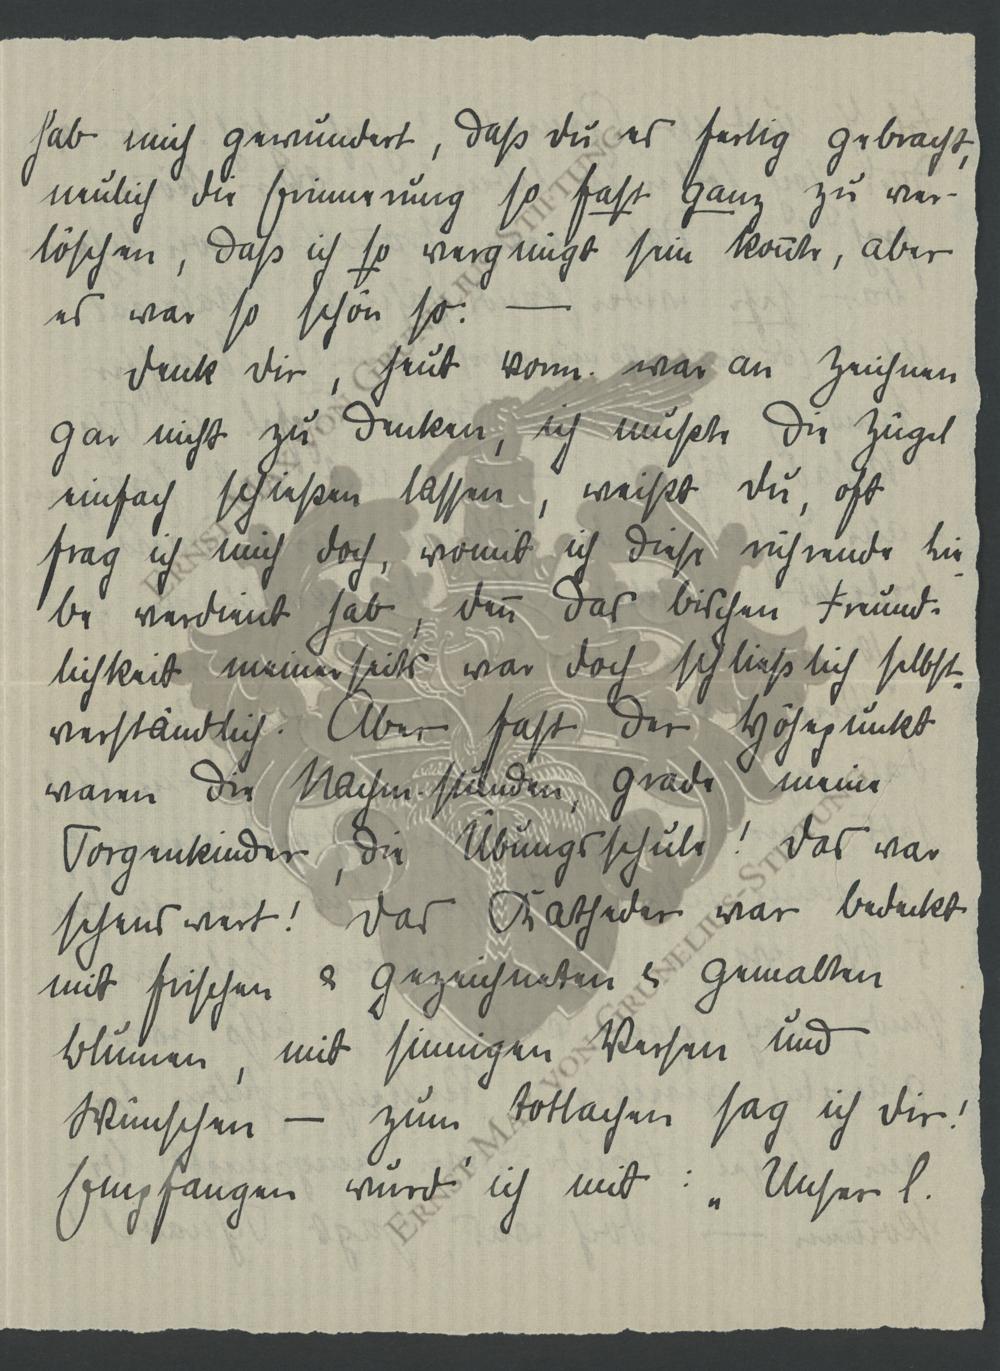 hab mich gewundert, daß du es fertig gebracht,
neulich die Erinnerung so fast ganz zu ver-
löschen, daß ich so vergnügt sein kon̄te, aber
es war so schön so: —
Denk dir, heut Vorm. war an Zeichnen
gar nicht zu denken, ich mußte die Zügel
einfach schießen lassen, weißt du, oft
frag ich mich doch, womit ich diese rührende Lie-
be verdient hab, den̄ das bischen Freund-
lichkeit meinerseits war doch schließlich selbst-
verständlich. Aber fast der Höhepunkt
waren die Nachm.stunden, grade meine
Sorgenkinder, die Übungsschule! Das war
sehenswert! Das Katheder war bedeckt
mit frischen & gezeichneten & gemalten
Blumen, mit sinnigen Versen und
Wünschen — zum totlachen sag ich dir!
Empfangen wurd ich mit: „Unser l.
ERNST MAX VON GRUNELIUS-STIFTUNG
ERNST MAX VON GRUNELIUS-STIFTUNG